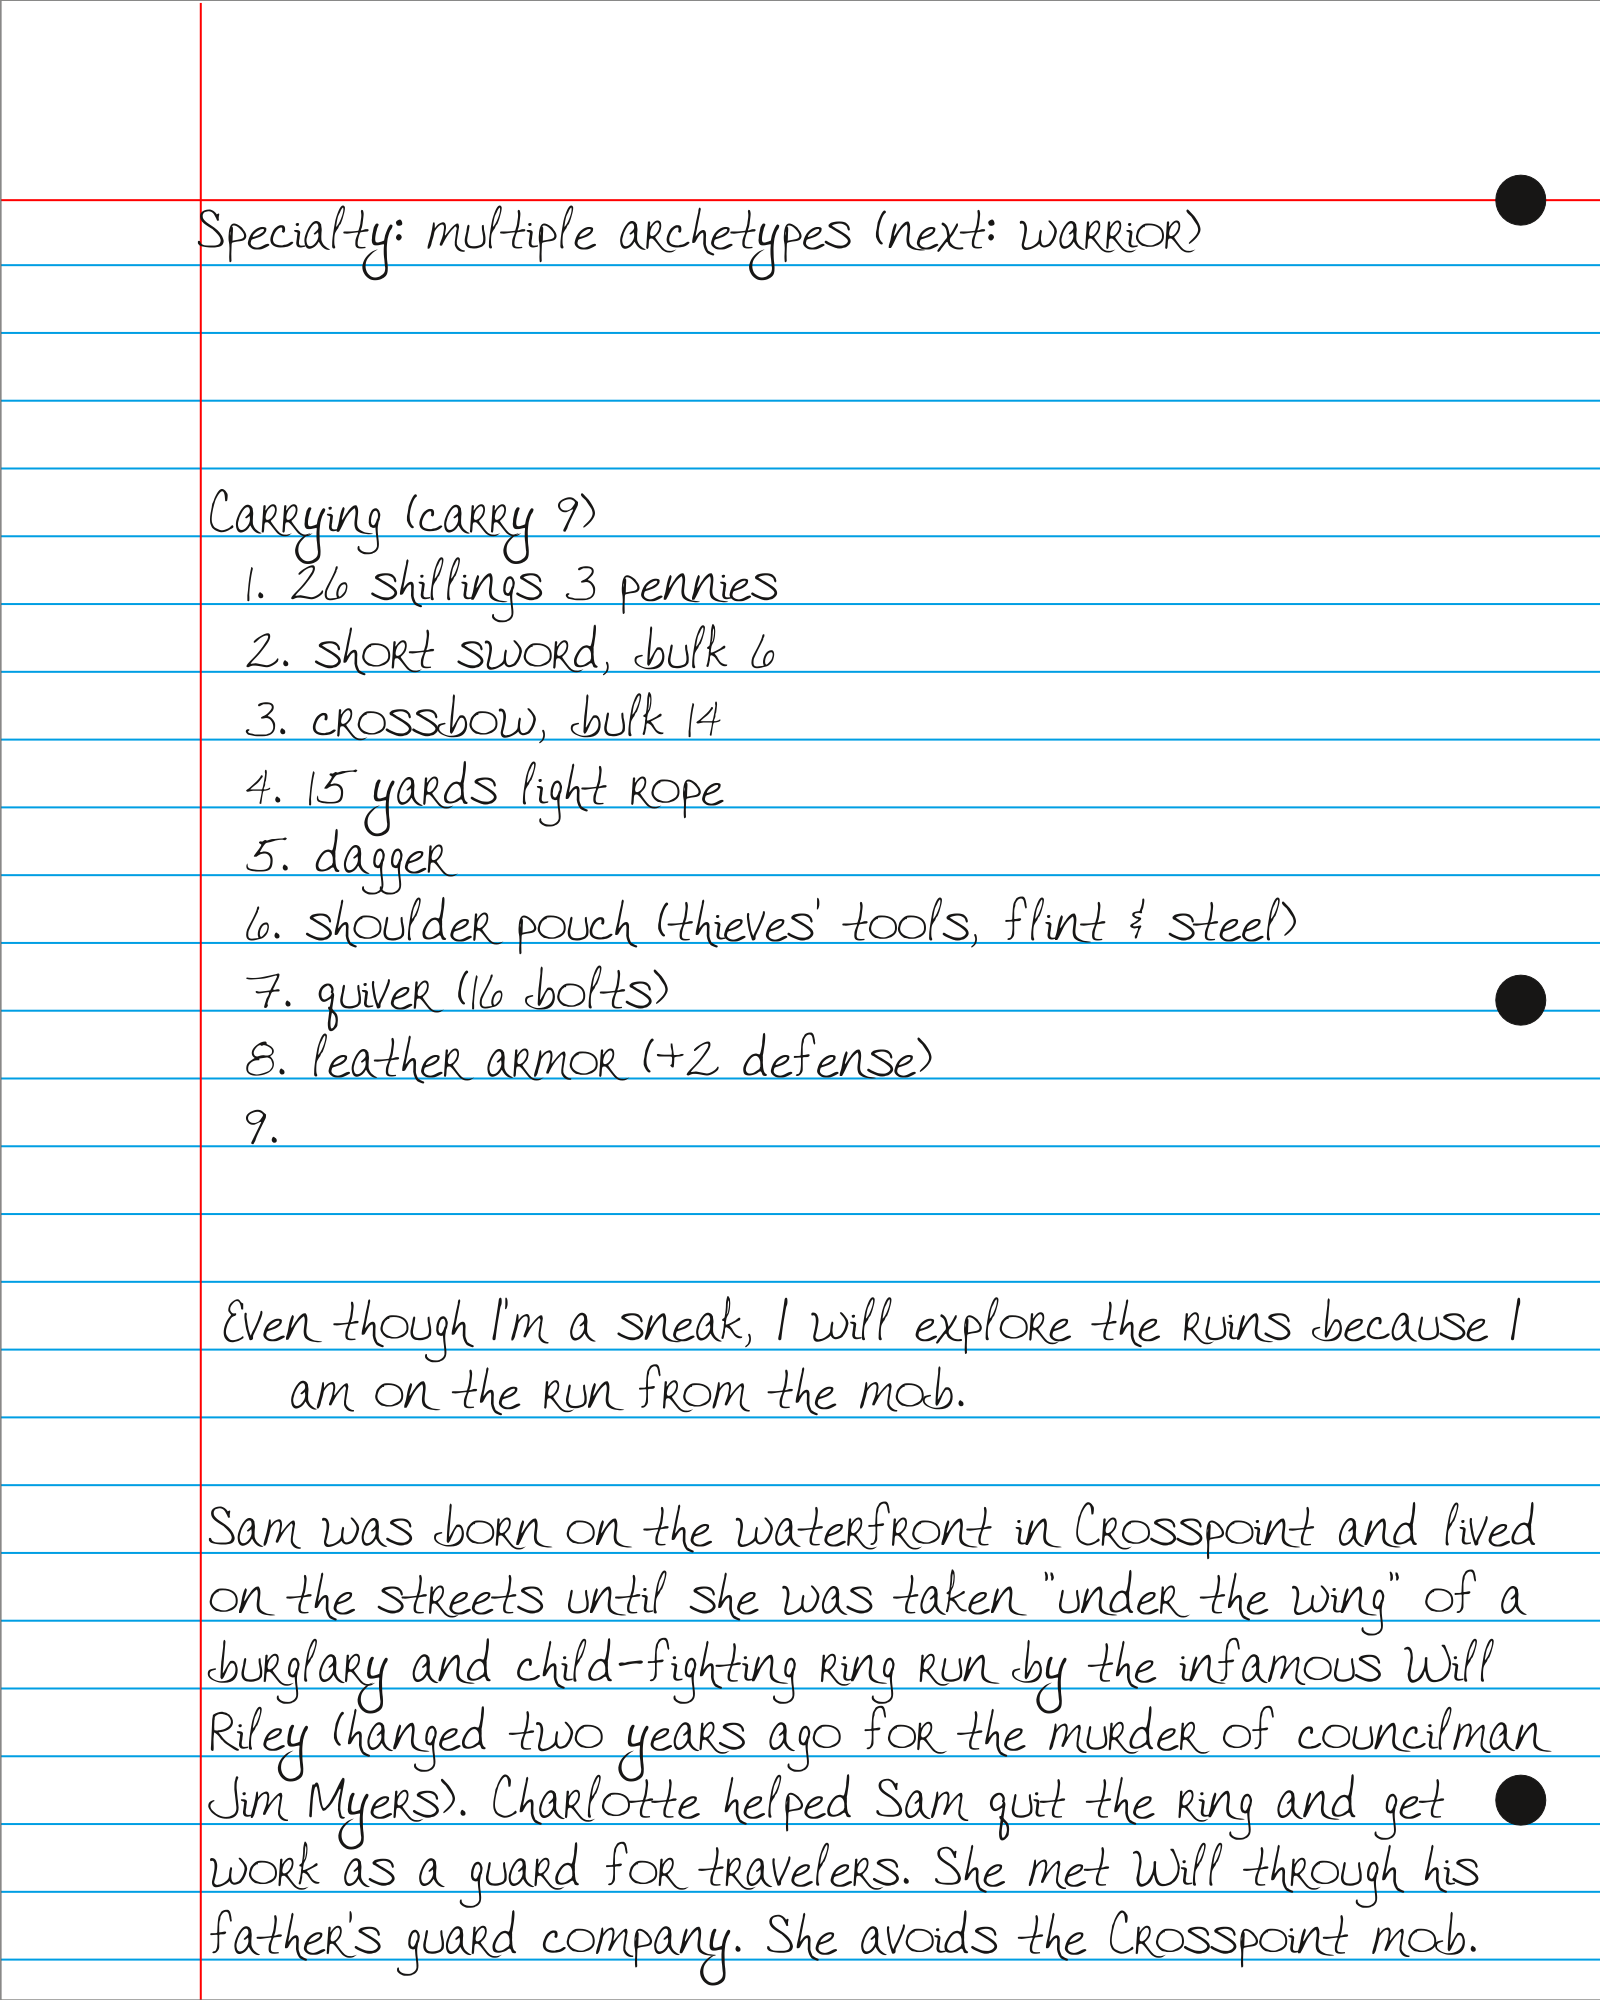 Specialty: multiple archetypes (next: warrior)
Carrying (carry 9)
1. 26 shillings 3 pennies
2. short sword, bulk 6
3. crossbow, bulk 14
4. 15 yards light rope
5. dagger
6. shoulder pouch (thieves' tools, flint & steel)
7. quiver (16 bolts)
8. leather armor (+2 defense)
9.
Even though I'm a sneak, I will explore the ruins because I
am on the run from the mob.
Sam was born on the waterfront in Crosspoint and lived
on the streets until she was taken "under the wing" of a
burglary and child-fighting ring run by the infamous Will
Riley (hanged two years ago for the murder of councilman
Jim Myers). Charlotte helped Sam quit the ring and get
work as a guard for travelers. She met Will through his
father's guard company. She avoids the Crosspoint mob.